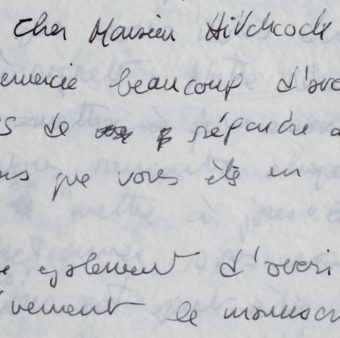 Cher Monsieur Hitchcock
emercie beaucoup d'avo
s de répondre a
ns que vous êtes en
e egalement d'avoir
vement le manusc